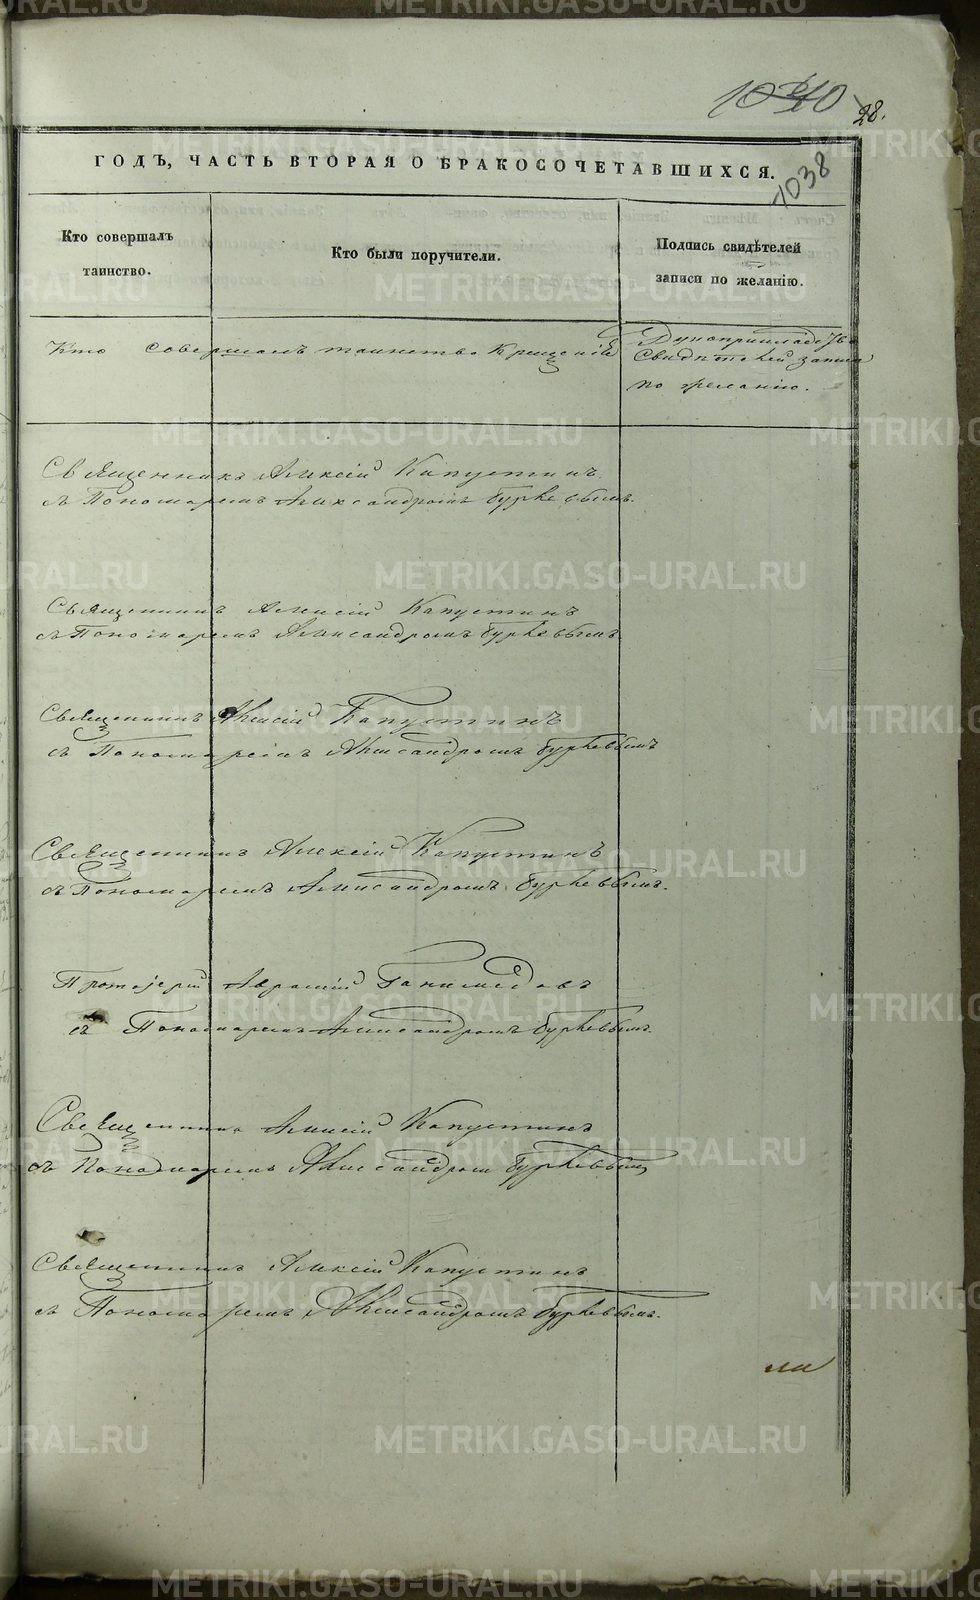 1040
28.
1038
ГОДЪ, ЧАСТЬ ВТОРАЯ О БРАКОСОЧЕТАВШИХСЯ.
Кто совершалъ таинство.
Кто были поручители.
Подпись свидѣтелей записи по желанію.
Кто совершалъ таинство Крещенія
Свидѣтелей записи
по желанію.
Священникъ Алексій Капустинъ
съ Пономаремъ Александромъ
Священникъ Алексій Капустинъ
съ Пономаремъ Александромъ
Священникъ Алексій Капустинъ
съ Пономаремъ Александромъ
Священникъ Алексій Капустинъ
съ Пономаремъ Александромъ
Протоіерей Аврамій Ганимедовъ
съ Пономаремъ Александромъ
Священникъ Алексій Капустинъ
съ Пономаремъ Александромъ
Священникъ Алексій Капустинъ
съ Пономаремъ Александромъ
METRIKI.GASO-URAL.RU